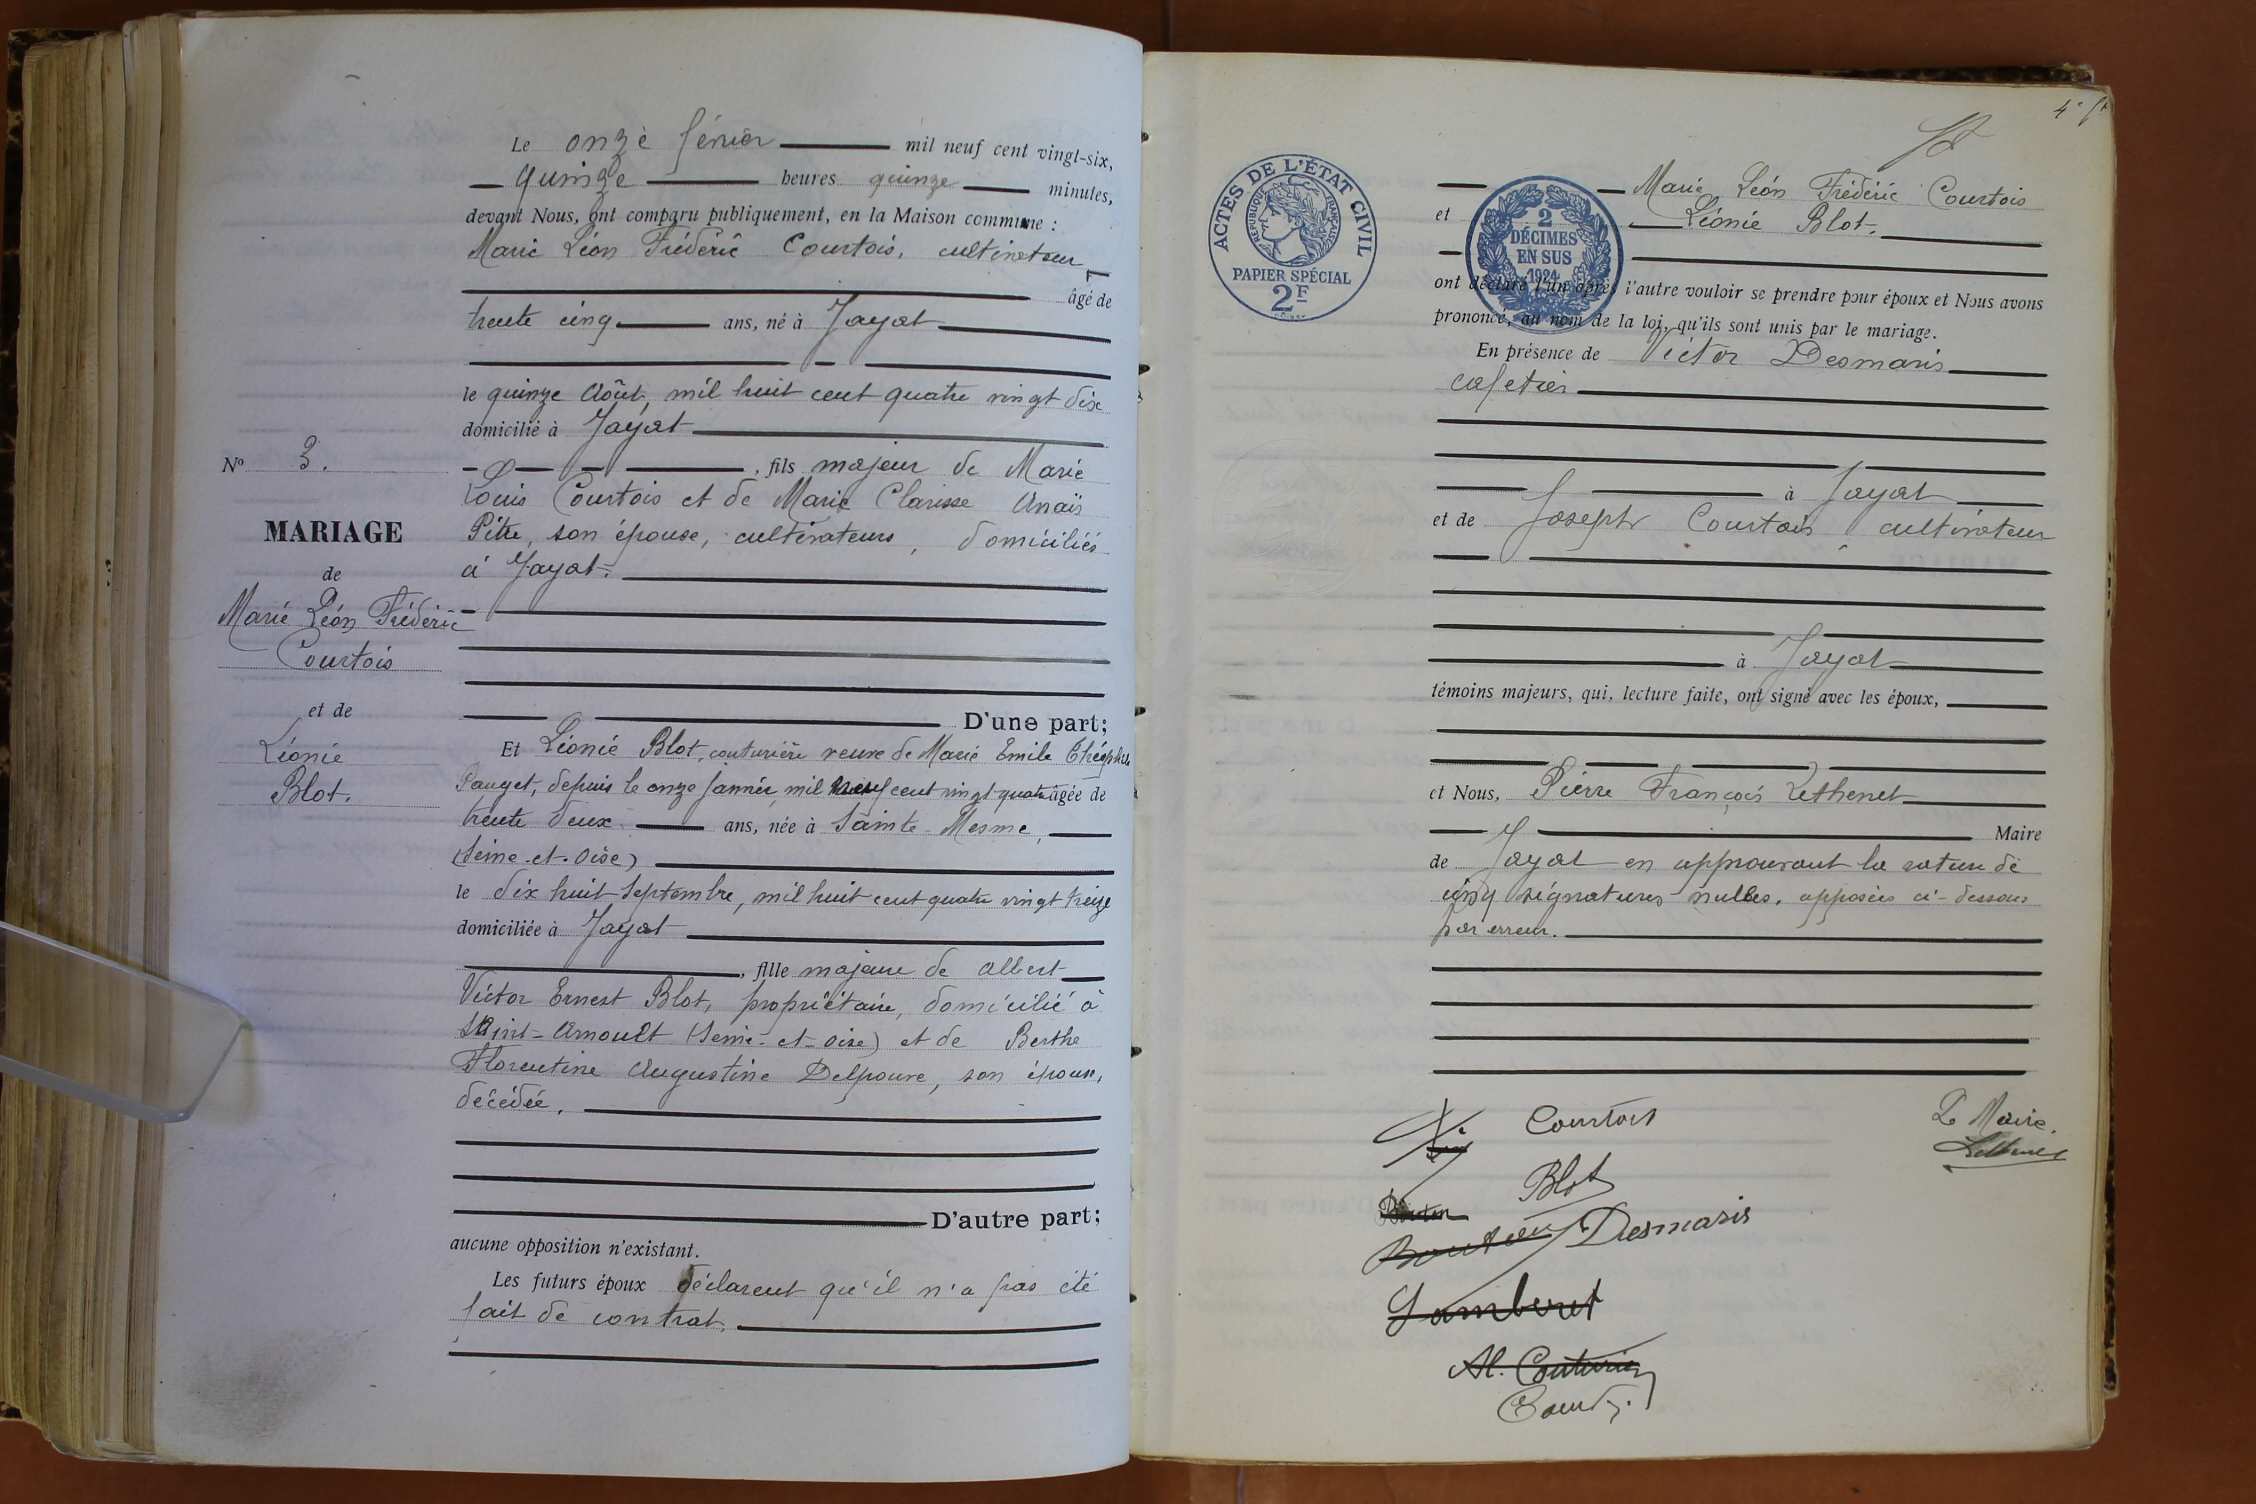 Le onze février mil neuf cent vingt-six,
quinze heures quinze minutes,
devant Nous, ont comparu publiquement, en la Maison commune :
Marie Léon Frédéric Courtois, cultivateur
âgé de
trente cinq ans, né à Jayat
le quinze Août, mil huit cent quatre vingt dix
domicilié à Jayat
, fils majeur de Marie
Louis Courtois et de Marie Clarisse Anaïs
Pitre, son épouse, cultivateurs, domiciliés
à Jayat.
D'une part;
Et Léonie Blot, couturière veuve de Marie Emile Théophile
Pauget, depuis le onze janvier mil neuf cent vingt quatre âgée de
trente deux ans, née à Sainte-Mesme,
(Seine-et-Oise)
le dix huit Septembre, mil huit cent quatre vingt treize
domiciliée à Jayat
, fille majeure de Albert
Victor Ernest Blot, propriétaire, domicilié à
Saint-Arnoult (Seine-et-Oise) et de Berthe
Florentine Augustine Delpoure, son épouse,
décédée.
D'autre part;
aucune opposition n'existant.
Les futurs époux déclarent qu'il n'a pas été
fait de contrat.
No 3.
MARIAGE
de
Marie Léon Frédéric
Courtois
et de
Léonie
Blot.
4e
ACTES DE L'ÉTAT CIVIL
RÉPUBLIQUE FRANÇAISE
PAPIER SPÉCIAL
2F
2
DÉCIMES
EN SUS
1924
Marie Léon Frédéric Courtois
et Léonie Blot.
ont déclaré l'un après l'autre vouloir se prendre pour époux et Nous avons
prononcé, au nom de la loi, qu'ils sont unis par le mariage.
En présence de Victor Desmaris
cafetier
à Jayat
et de Joseph Courtois cultivateur
à Jayat
témoins majeurs, qui, lecture faite, ont signé avec les époux,
et Nous, Pierre François Lethenet
Maire
de Jayat en approuvant la rature de
cinq signatures nulles, apposées ci-dessous
par erreur.
Courtois
Le Maire.
Lethenet
Blot
Bouton
Desmaris
Jamberet
Al. Couturier